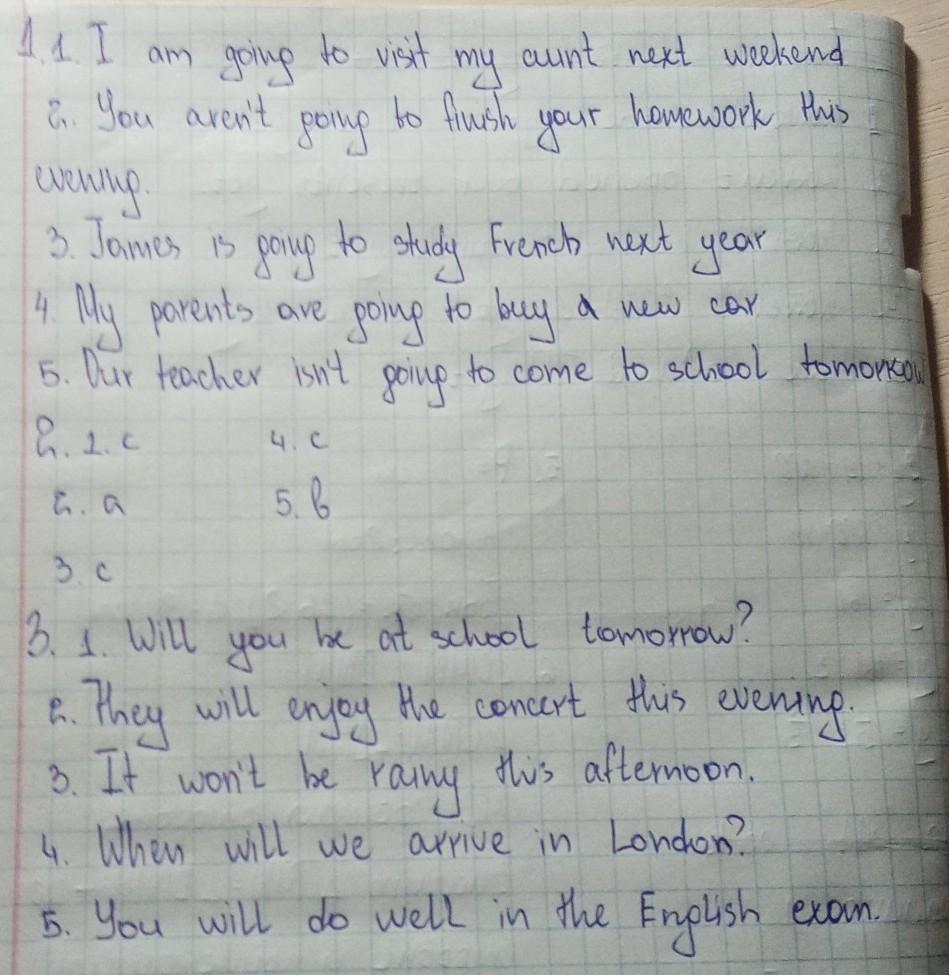 1. 1. I am going to visit my aunt next weekend
2. You aren't going to finish your homework this
evening.
3. James is going to study French next year
4. My parents are going to buy a new car
5. Our teacher isn't going to come to school tomorrow
2. 1. c 4. c
2. a 5. b
3. c
3. 1. Will you be at school tomorrow?
2. They will enjoy the concert this evening.
3. It won't be rainy this afternoon.
4. When will we arrive in London?
5. You will do well in the English exam.